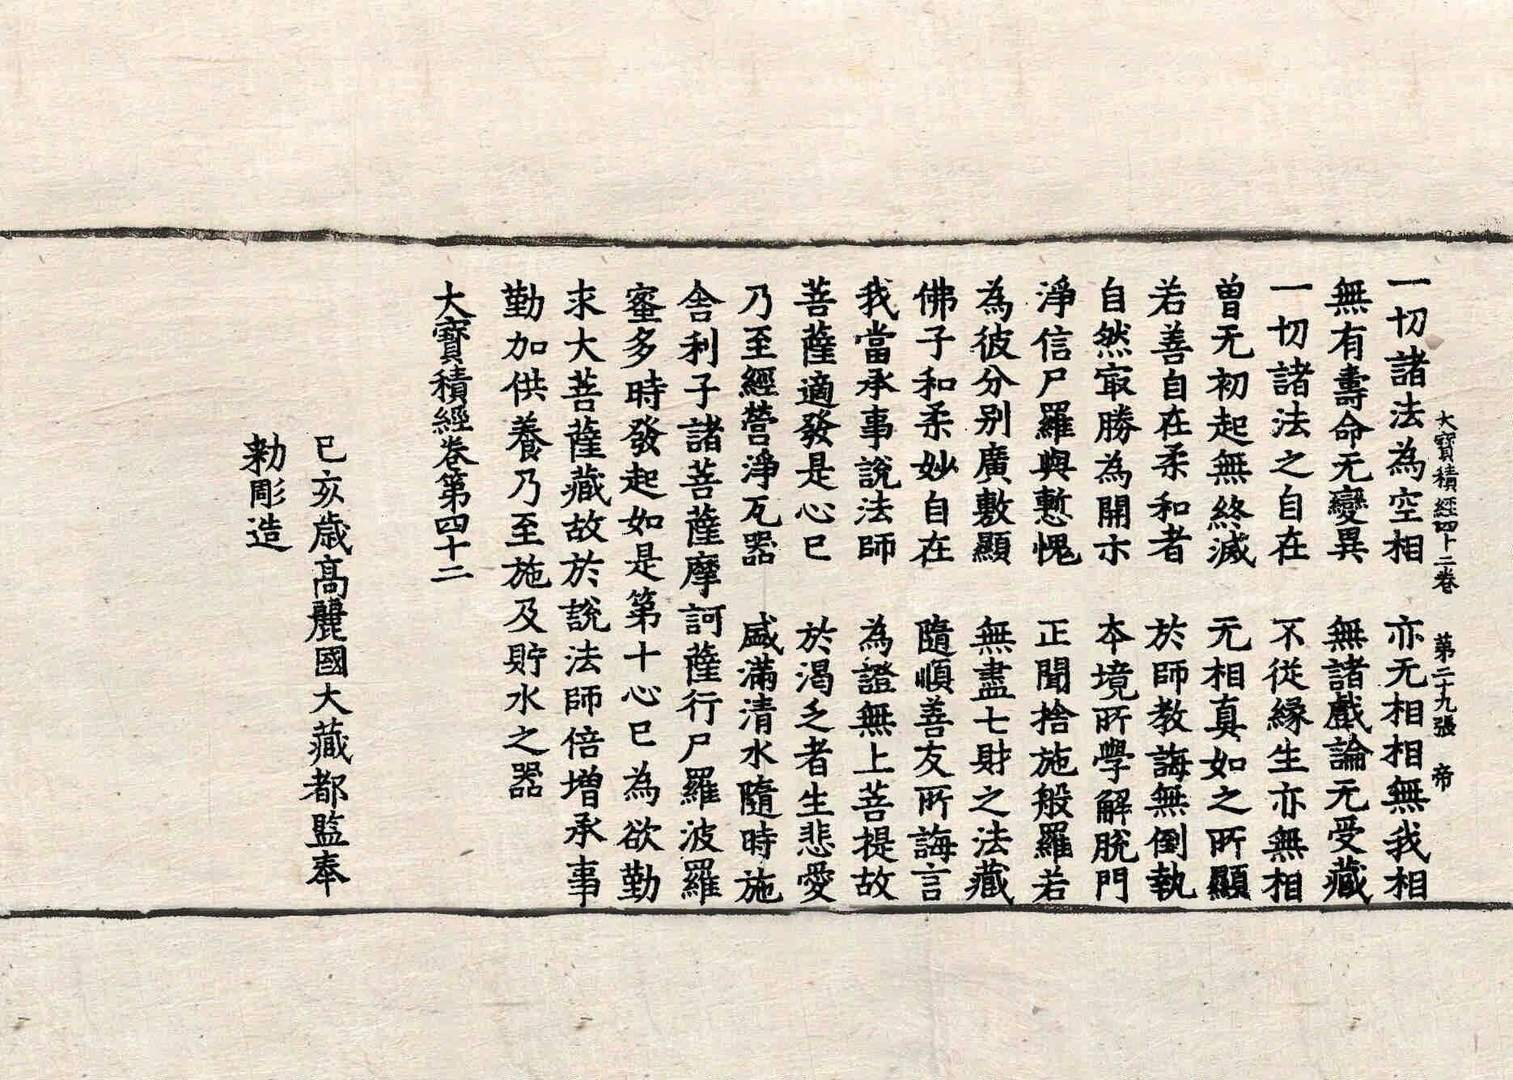 大寶積經四十二卷　第二十九張　帝
一切諸法為空相　亦无相相無我相
無有壽命无變異　無諸戲論无受藏
一切諸法之自在　不從緣生亦無相
曽无初起無終滅　无相真如之所顯
若善自在柔和者　於師教誨無倒執
自然㝡勝為開示　本境所學解脫門
淨信尸羅與慙愧　正聞捨施般羅若
為彼分别廣敷顯　無盡七財之法藏
佛子和柔妙自在　隨順善友所誨言
我當承事說法師　為證無上菩提故
菩薩適發是心已　於渴乏者生悲愛
乃至經營淨瓦器　盛滿清水隨時施
舎利子諸菩薩摩訶薩行尸羅波羅
蜜多時發起如是第十心已為欲勤
求大菩薩藏故於說法師倍增承事
勤加供養乃至施及貯水之器
大寶積經卷第四十二
己亥歲髙麗國大藏都監奉
勑彫造